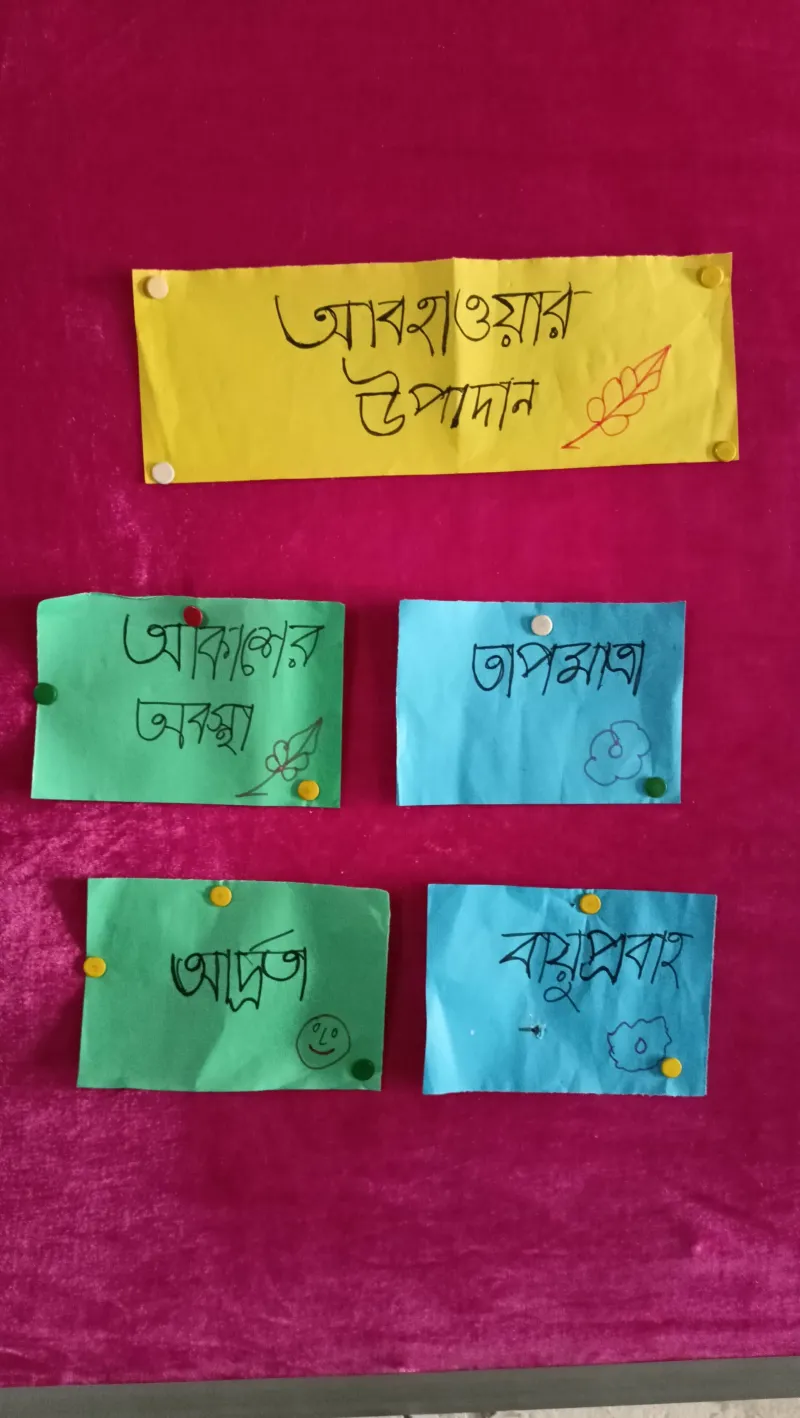 আবহাওয়ার
উপাদান
আকাশের
অবস্থা
তাপমাত্রা
আর্দ্রতা
বায়ুপ্রবাহ